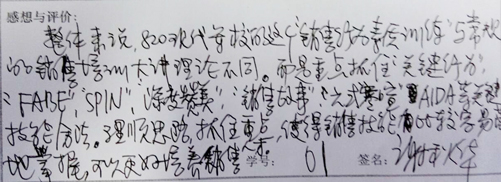 感想与评价:
整体来说,820现代学校的这个“销售行为素质训练”与常规
的销售培训大讲理论不同。而是重点抓住“关键行为”,
“FABE”,“SPIN”,“深度赞美”“销售故事”“六式寒暄”AIDA等关键
技能方法。理顺思路,抓住重点,使得销售技能比较容易
地掌握,可以更好培养销售
学号: 01 签名: